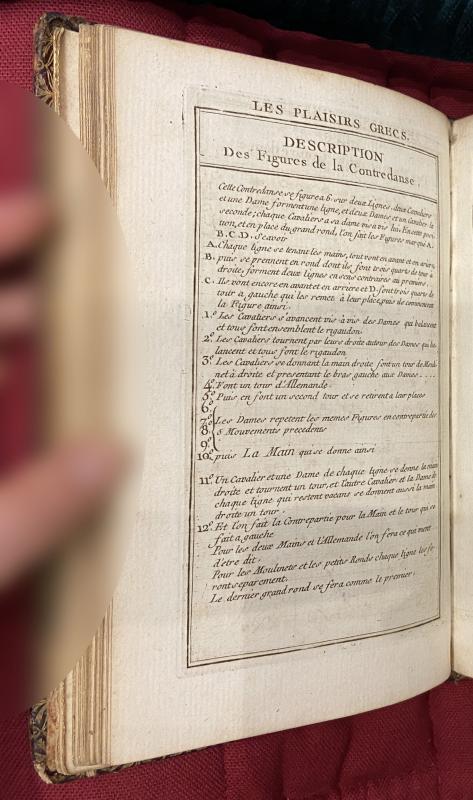 LES PLAISIRS GRECS.
DESCRIPTION
Des Figures de la Contredanse.
Cette Contredanse se figure a 6. sur deux Lignes, deux Cavaliers
et une Dame forment une ligne, et deux Dames et un Cavalier la
seconde; chaque Cavaliers a sa dame vis a vis lui. En cette posi
tion, et en place du grand rond, l'on fait les Figures marquée A.
B. C. D. Scavoir
A. Chaque ligne se tenant les mains, tout vont en avant et en arriere,
B. puis se prennent en rond dont ils font trois quarts de tour à
droite, forment deux lignes en sens contraires au premiers.
C. Ils vont encore en avant et en arriere et D. font trois quarts de
tour a gauche qui les remet à leur place, puis ils commencent
la Figure ainsi.
1.º Les Cavaliers s'avancent vis à vis des Dames qui balancent
et tous font ensemble le rigaudon.
2.º Les Cavaliers tournent par leurs droite autour des Dames qui ba-
lancent et tous font le rigaudon
3.º Les Cavaliers se donnant la main droite font un tour de Mouli-
net à droite et presentant le bras gauche aux Dames . . . .
4.º Font un tour d'Allemande.
5.º Puis en font un second tour et se retirent à leur places
6.
7.º Les Dames repetent les memes Figures en contrepartie des
8. 5 Mouvements precedents
9.
10.º puis La Main qui se donne ainsi
11.º Un Cavalier et une Dame de chaque ligne se donne la main
droite et tournent un tour, et l'autre Cavalier et la Dame de
chaque ligne qui restent vacans se donnent aussi la main
droite un tour.
12.º Et l'on fait la Contrepartie pour la Main et le tour qui se
fait a gauche
Pour les deux Mains et l'Allemande l'on fera ce qui vient
d'etre dit.
Pour les Moulinets et les petits Ronds chaque ligne les fe
ront separement.
Le dernier grand rond se fera comme le premier.